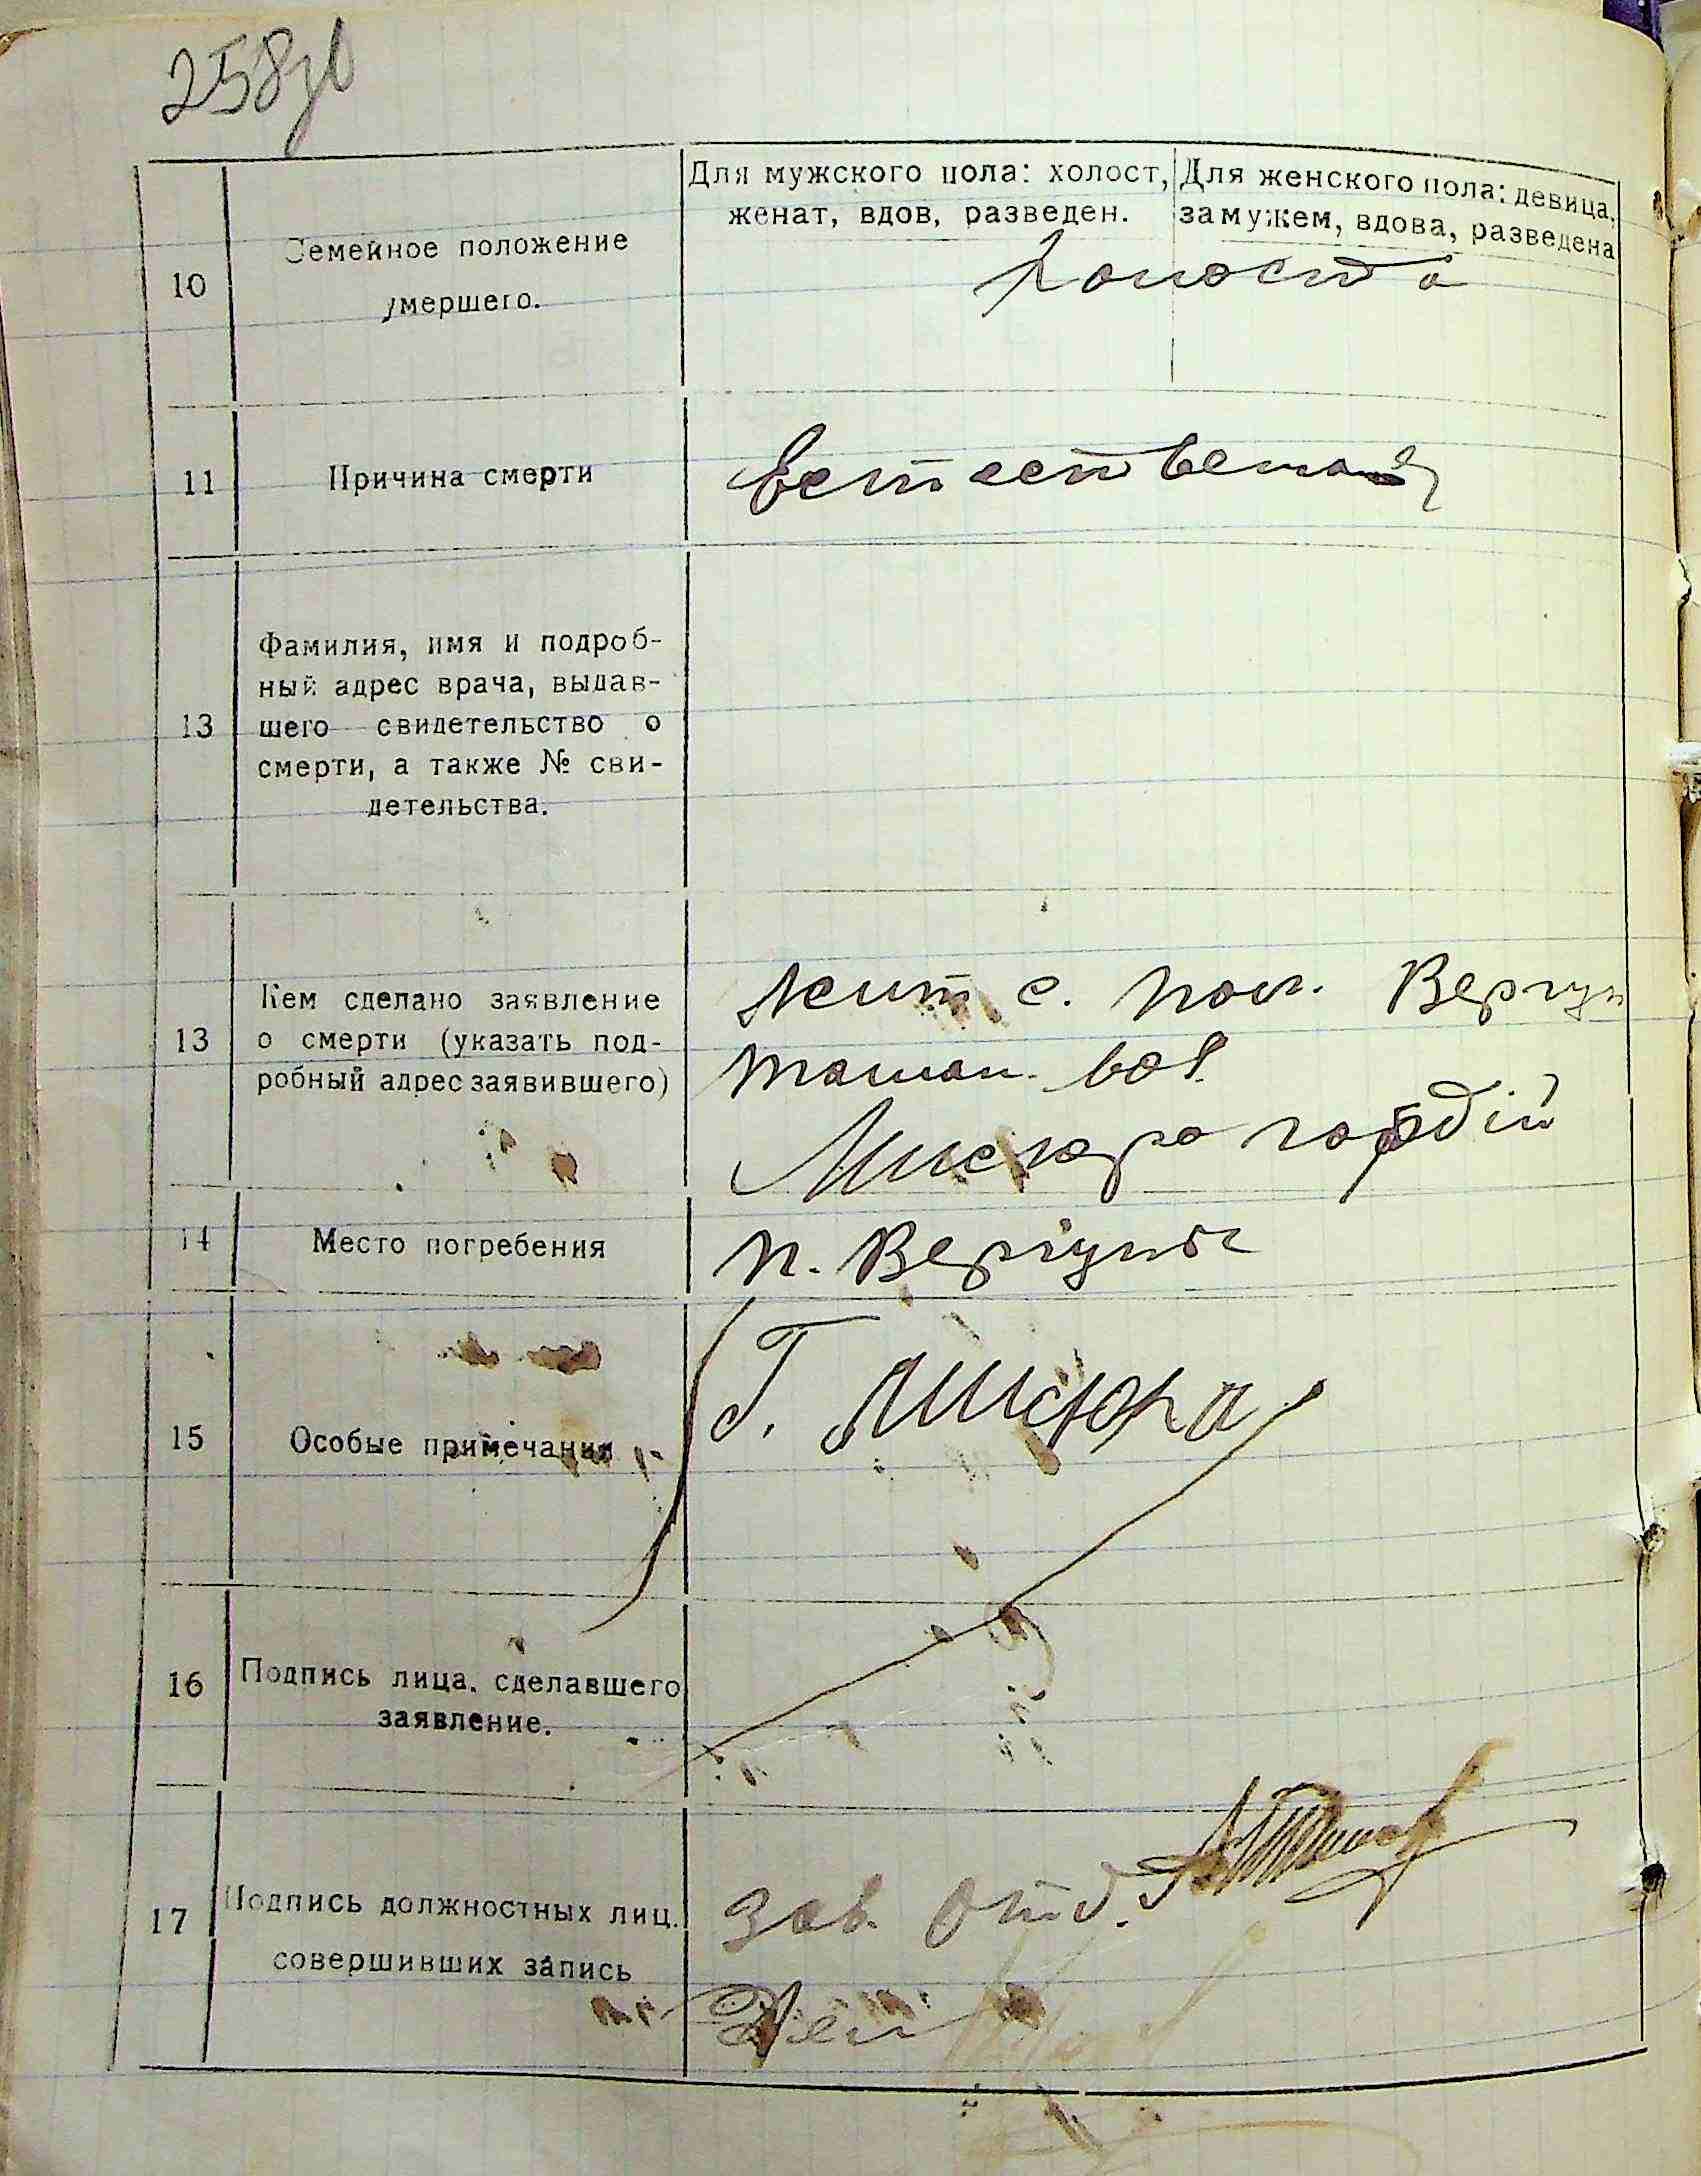 258
Для мужского пола: холост,
женат, вдов, разведен.
Для женского пола: девица,
замужем, вдова, разведена
10
Семейное положение
умершего.
холоста
11
Причина смерти
Естественая
13
Фамилия, имя и подроб-
ный адрес врача, выдав-
шего свидетельство о
смерти, а также № сви-
детельства.
13
Кем сделано заявление
о смерти (указать под-
робный адрес заявившего)
жит с. пос. Вергун
Ташан. вол.
Мисюра Гордій
14
Место погребения
п. Вергуны
15
Особые примечания
Г. Мисюра
16
Подпись лица, сделавшего
заявление.
17
Подпись должностных лиц.
совершивших запись
Зав. Отд.